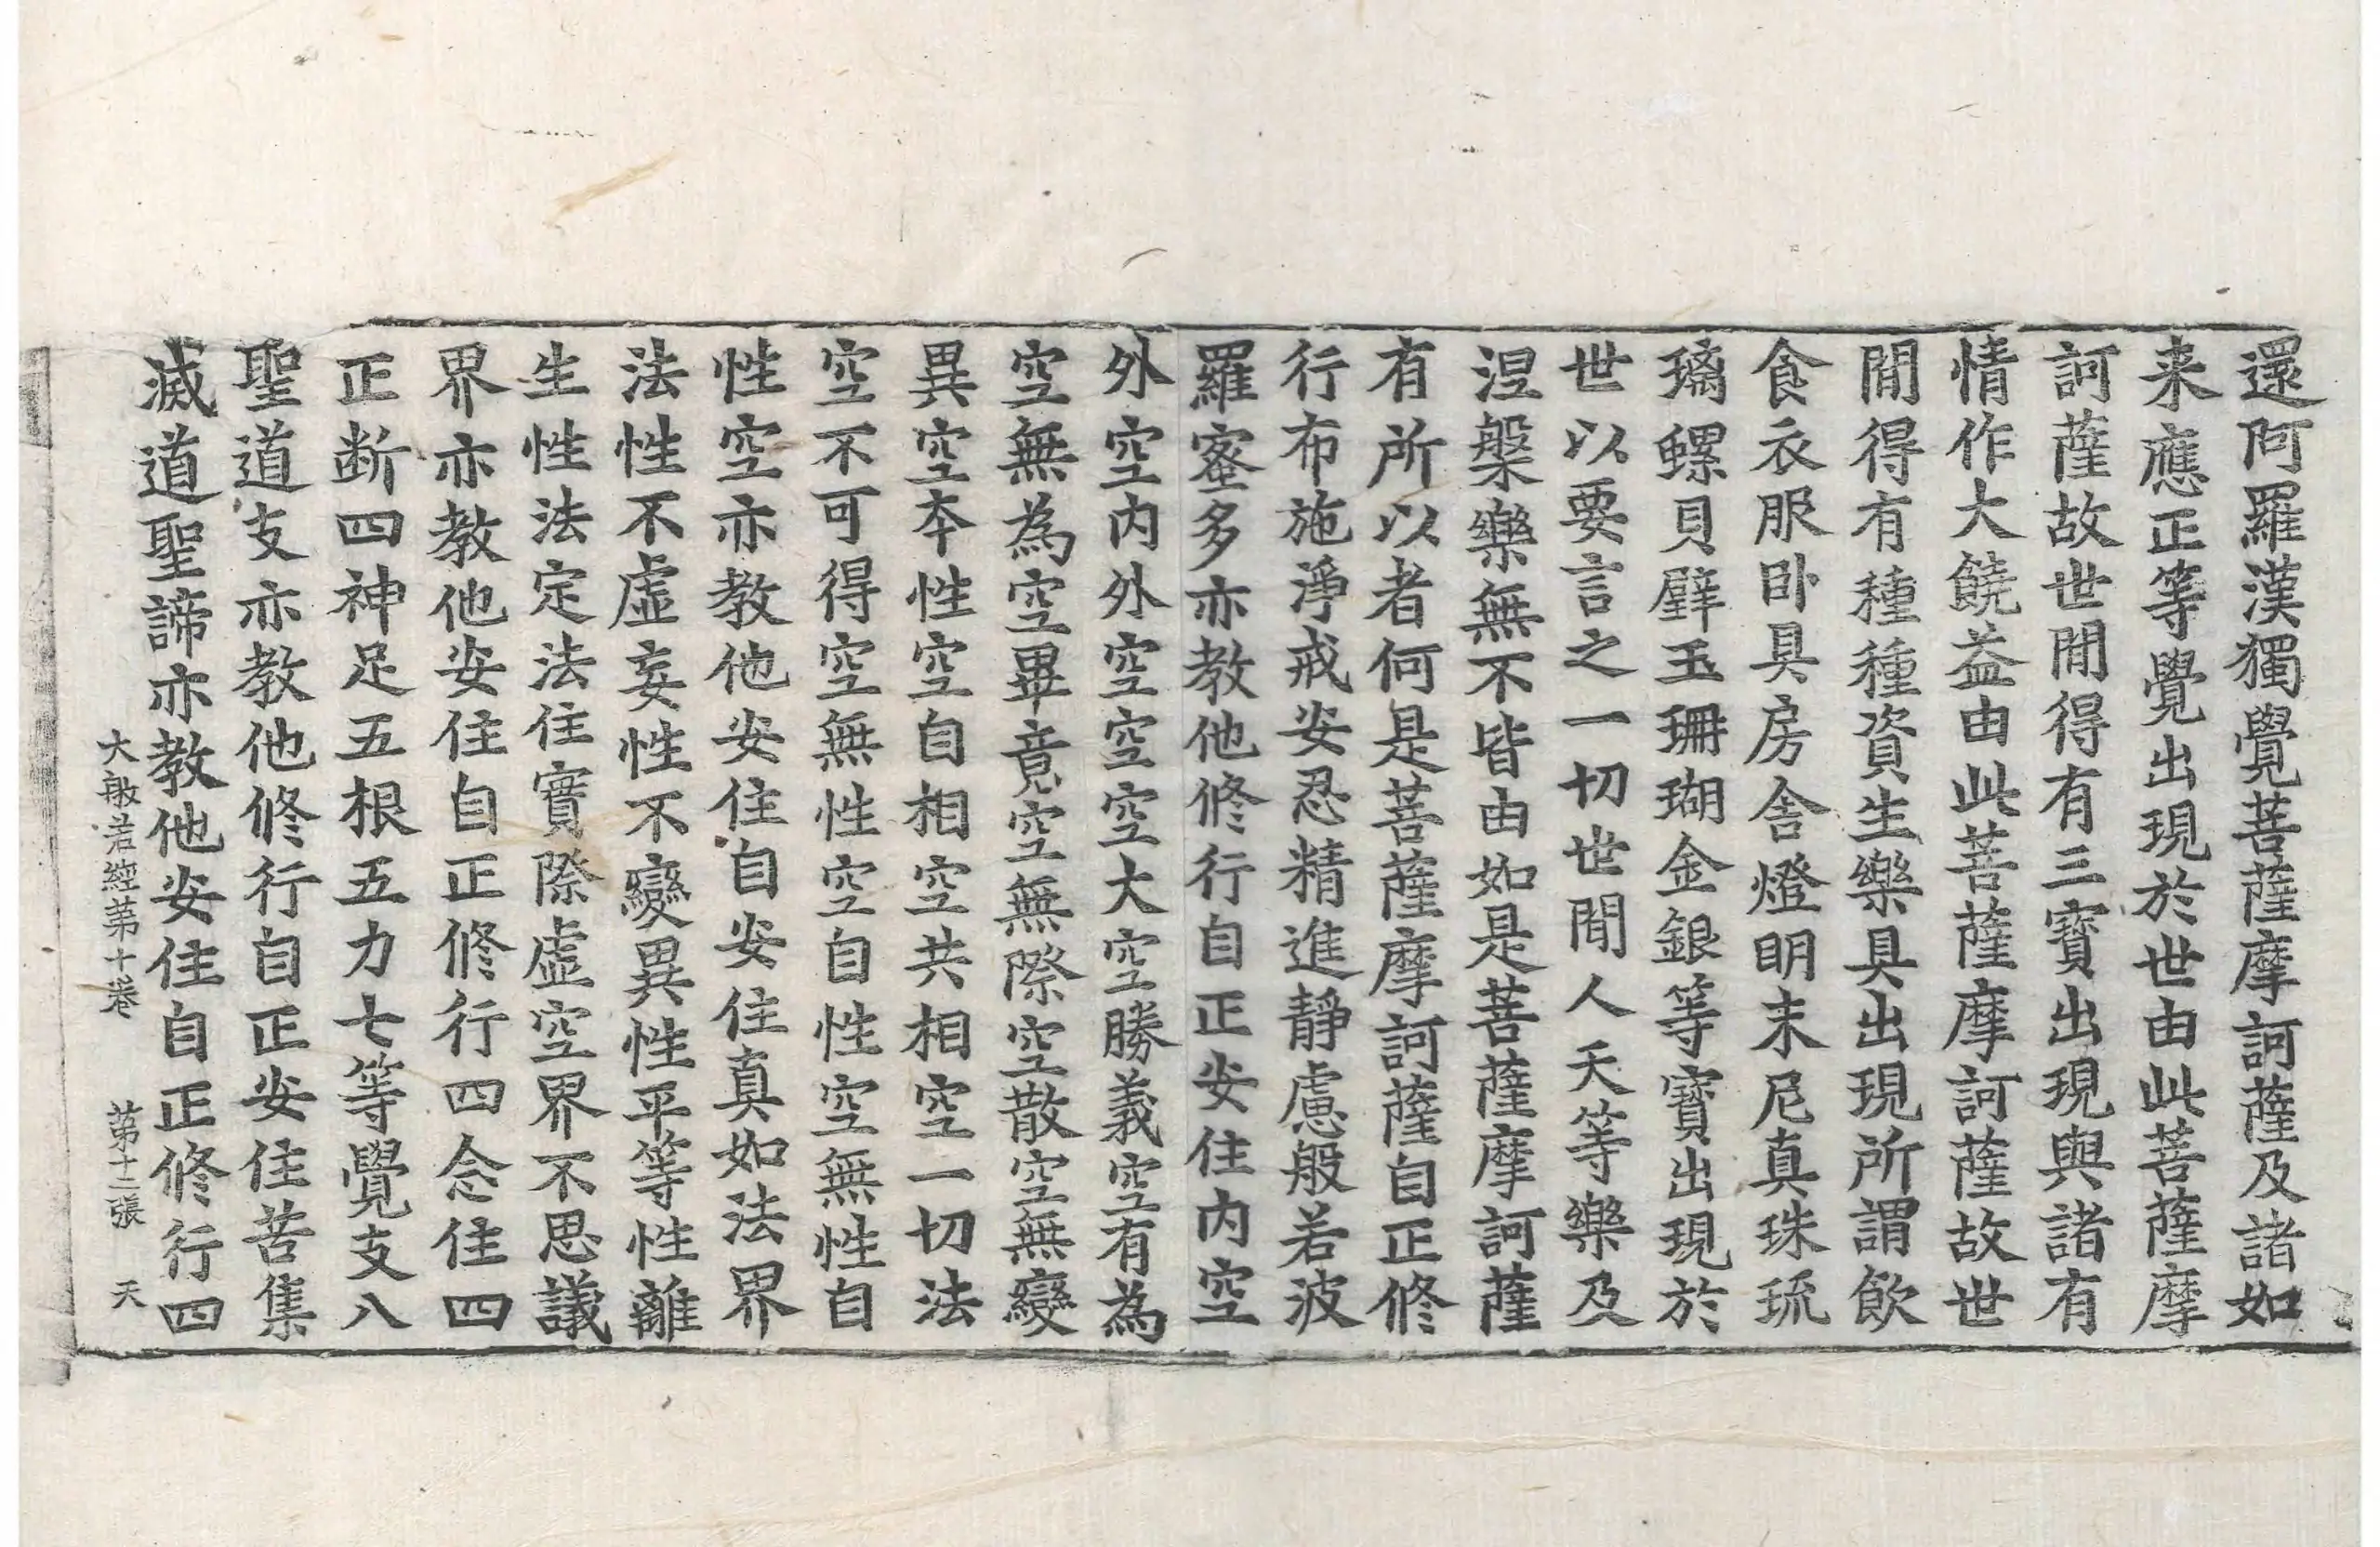 還阿羅漢獨覺菩薩摩訶薩及諸如
来應正等覺出現於世由此菩薩摩
訶薩故世閒得有三寶出現與諸有
情作大饒益由此菩薩摩訶薩故世
閒得有種種資生樂具出現所謂飲
食衣服卧具房舍燈明末尼真珠琉
璃螺貝璧玉珊瑚金銀等寶出現於
世以要言之一切世閒人天等樂及
涅槃樂無不皆由如是菩薩摩訶薩
有所以者何是菩薩摩訶薩自正修
行布施淨戒安忍精進靜慮般若波
羅蜜多亦教他修行自正安住内空
外空内外空空空大空勝義空有為
空無為空畢竟空無際空散空無變
異空本性空自相空共相空一切法
空不可得空無性空自性空無性自
性空亦教他安住自安住真如法界
法性不虛妄性不變異性平等性離
生性法定法住實際虛空界不思議
界亦教他安住自正修行四念住四
正斷四神足五根五力七等覺支八
聖道支亦教他修行自正安住苦集
滅道聖諦亦教他安住自正修行四
大般若經第十卷 第十二張 天